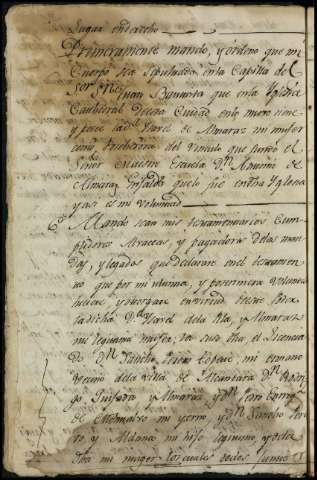 lugar en derecho
Primeramente mando, y ordeno que mi
Cuerpo sea sepultado en la Capilla del
Sor. Sn. Juan Bauptista que en la Yglesia
Cathedral desta Ciudad
y posee la dha. Ysavel de Almaraz mi muger
como subcesora del vinculo que fundó el
Señor Maestre Escuela Dn. Antonio de
Almaraz su fundador que lo fue en otra Yglesia
y así es mi voluntad
Mando sean mis testamentarios Cum-
plidores Albaceas, y pagadores de las man-
das, y legados que declarare en el testamen-
to que por mi ultima, y postrimera voluntad
hiciere, y otorgare en virtud deste Poder
la dicha Da. Ysavel de la Pila, y Almaraz
mi legitima muger, la suso dha. el licencia-
do Dn. Sancho Perez Topete, mi hermano
vecino dela villa de Alcantara Dn. Rodri-
go y Almaraz y Dn. Pedro Enrriq
de mi yerno, y Dn. Sancho
y Aldana mi hijo legitimo, y dela
dha mi muger los cuales todos juntos